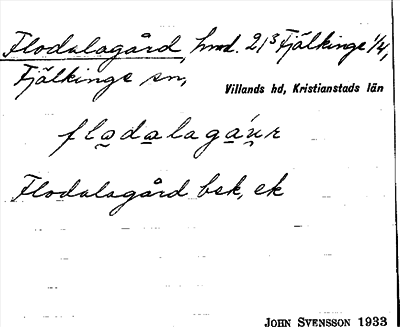 Flodalagård, hmd. 2/3 Fjälkinge 1/4,
Fjälkinge sn,
Villands hd, Kristianstads län
flo̯da̱laga̱ún̯r
Flodalagård bsk, ek
JOHN SVENSSON 1933